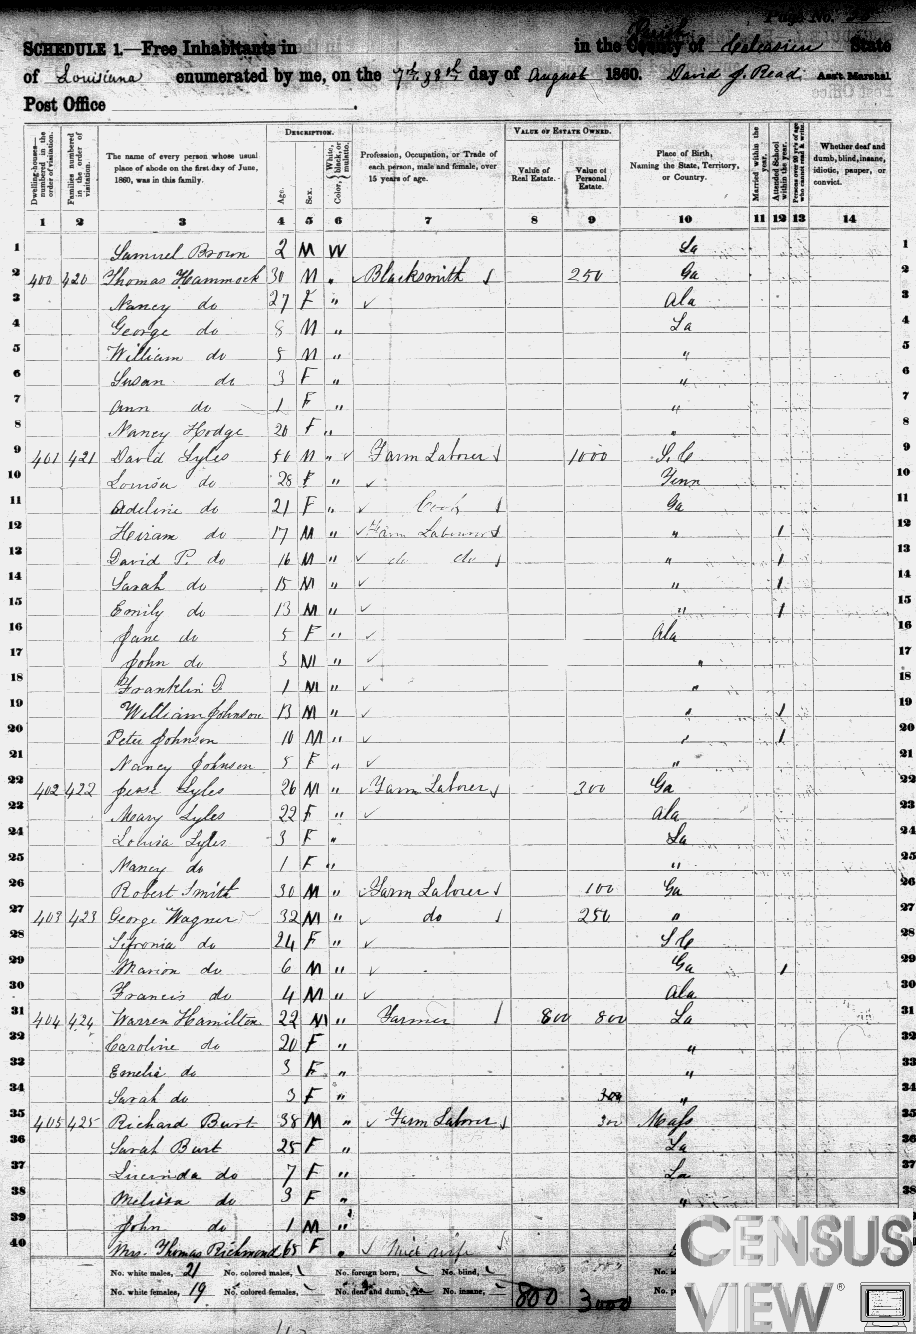 Page No.
SCHEDULE 1.—Free Inhabitants in in the County of Parish Calcasieu State
of Louisiana enumerated by me, on the 7th & 8th day of August 1860. David J. Read Ass't Marshal
Post Office
Dwelling-houses—numbered in the order of visitation.
Families numbered in the order of visitation.
The name of every person whose usual place of abode on the first day of June, 1860, was in this family.
DESCRIPTION.
Age.
Sex.
Color, White, black, or mulatto.
Profession, Occupation, or Trade of each person, male and female, over 15 years of age.
VALUE OF ESTATE OWNED.
Value of Real Estate.
Value of Personal Estate.
Place of Birth, Naming the State, Territory, or Country.
Married within the year.
Attended School within the year.
Persons over 20 y'rs of age who cannot read & write.
Whether deaf and dumb, blind, insane, idiotic, pauper, or convict.
1 2 3 4 5 6 7 8 9 10 11 12 13 14
1 Samuel Brown 2 M W La 1
2 400 420 Thomas Hammock 30 M " Blacksmith 250 Ga 2
3 Nancy do 27 F " Ala 3
4 George do 8 M " La 4
5 William do 5 M " " 5
6 Susan do 3 F " " 6
7 Ann do 1 F " " 7
8 Nancy Hodge 20 F " " 8
9 401 421 David Lyles 50 M " Farm Laborer 1000 S.C 9
10 Louisa do 28 F " Tenn 10
11 Adeline do 21 F " Cook Ga 11
12 Heiram do 17 M " Farm Labourer " 1 12
13 David P. do 16 M " do do " 1 13
14 Sarah do 15 M " " 1 14
15 Emily do 13 M " " 1 15
16 Jane do 5 F " Ala 16
17 John do 3 M " " 17
18 Franklin D 1 M " " 18
19 William Johnson 13 M " " 1 19
20 Peter Johnson 10 M " " 1 20
21 Nancy Johnson 5 F " " 21
22 402 422 Jesse Lyles 26 M " Farm Laborer 300 Ga 22
23 Meary Lyles 22 F " Ala 23
24 Louisa Lyles 3 F " La 24
25 Nancy do 1 F " " 25
26 Robert Smith 30 M " Farm Laborer 100 Ga 26
27 403 423 George Wagner 32 M " do 250 " 27
28 Sifronia do 24 F " S C 28
29 Marion do 6 M " Ga 1 29
30 Francis do 4 M " Ala 30
31 404 424 Warren Hamilton 22 M " Farmer 800 800 La 31
32 Caroline do 20 F " " 32
33 Emelia do 3 F " " 33
34 Sarah do 3 F " 300 " 34
35 405 425 Richard Burt 38 M " Farm Laborer 300 Mass 35
36 Sarah Burt 25 F " La 36
37 Lucinda do 7 F " La 37
38 Melissa do 3 F " " 38
39 John do 1 M "
40 Mrs. Thomas Richmond 65 F " Mid wife
No. white males, 21 No. colored males, No. foreign born, No. blind,
No. white females, 19 No. colored females, No. deaf and dumb, No. insane, 800 3000
CENSUS
VIEW®